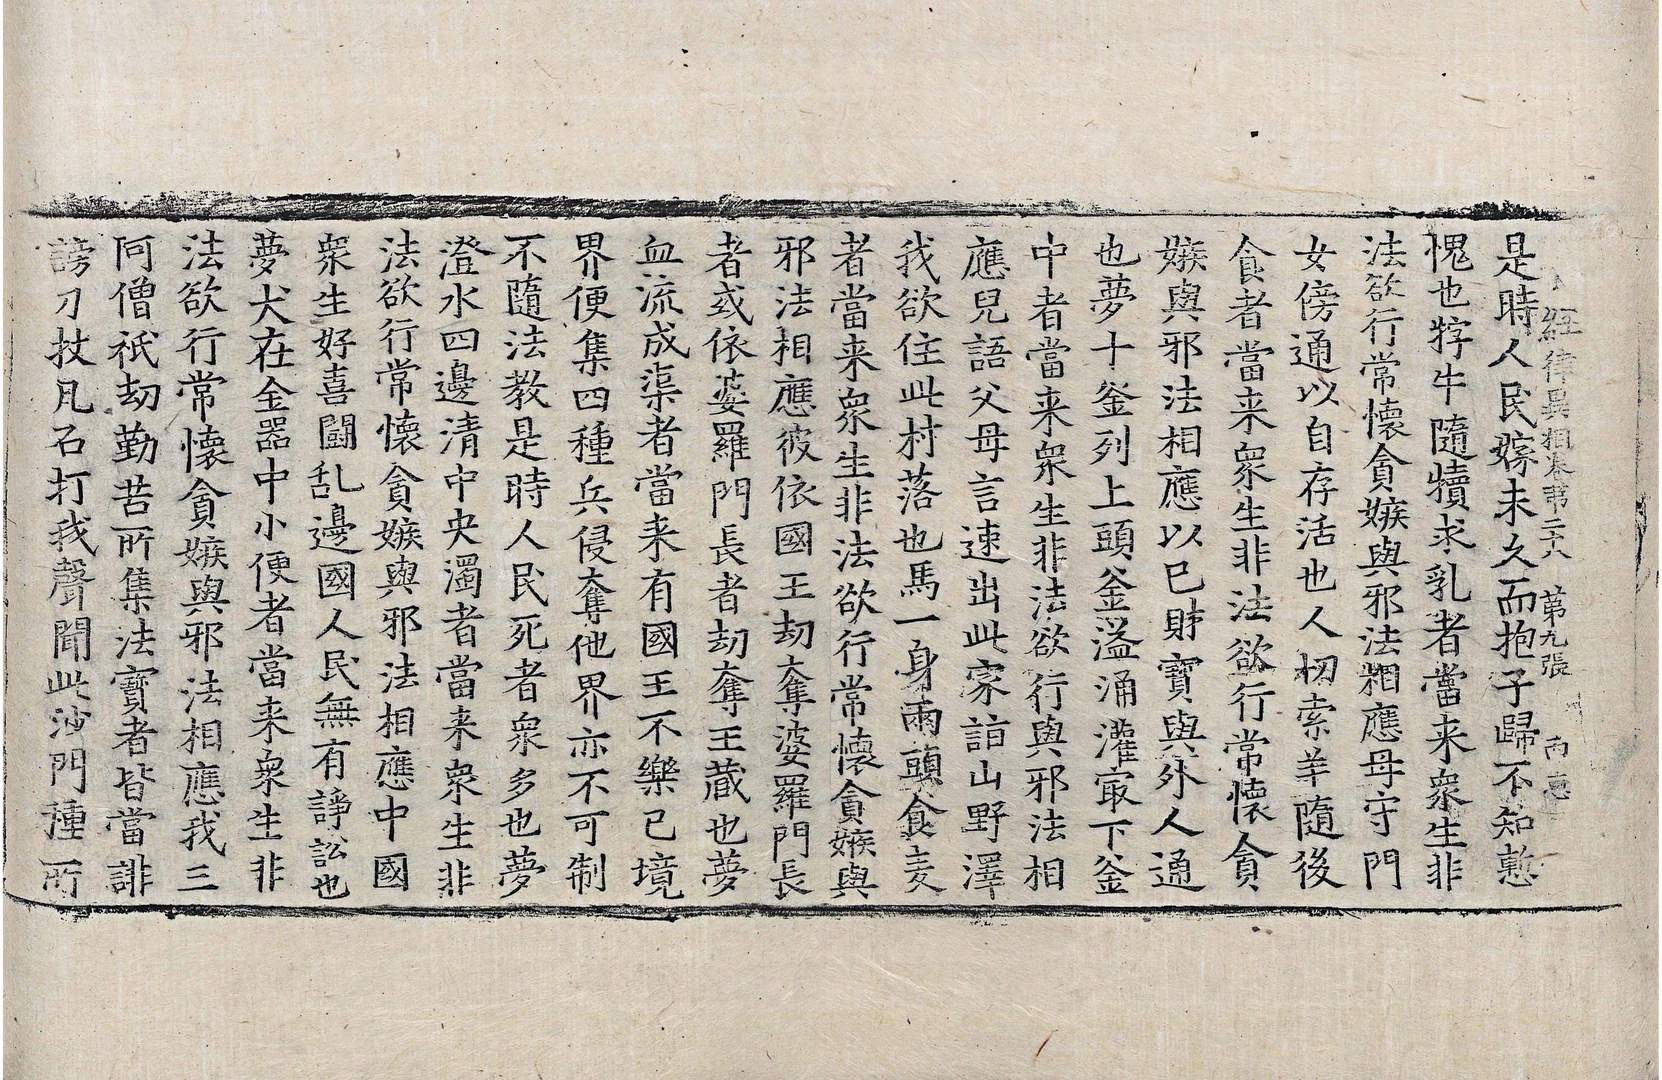 經律異相卷苐二十八　第九張　丙
是時人民嫁未久而抱子歸不知慙
愧也牸牛隨犢求乳者當来衆生非
法欲行常懷貪嫉與邪法相應母守門
女傍通以自存活也人切索羊隨後
食者當来衆生非法欲行常懷貪
嫉與邪法相應以己財寳與外人通
也夢十釜列上頭釜溢涌灌㝡下釜
中者當来衆生非法欲行與邪法相
應兒語父母言速出此家詣山野澤
我欲住此村落也馬一身兩頭食麦
者當来衆生非法欲行常懷貪嫉與
邪法相應彼依國王劫奪婆羅門長
者或依婆羅門長者劫奪王蔵也夢
血流成渠者當来有國王不樂己境
界便集四種兵侵奪他界亦不可制
不隨法教是時人民死者衆多也夢
澄水四邊清中央濁者當来衆生非
法欲行常懷貪嫉與邪法相應中國
衆生好喜鬪乱邊國人民無有諍訟也
夢犬在金器中小便者當来衆生非
法欲行常懷貪嫉與邪法相應我三
阿僧祇劫勤苦所集法寳者皆當誹
謗刀杖凡石打我聲聞此沙門種所